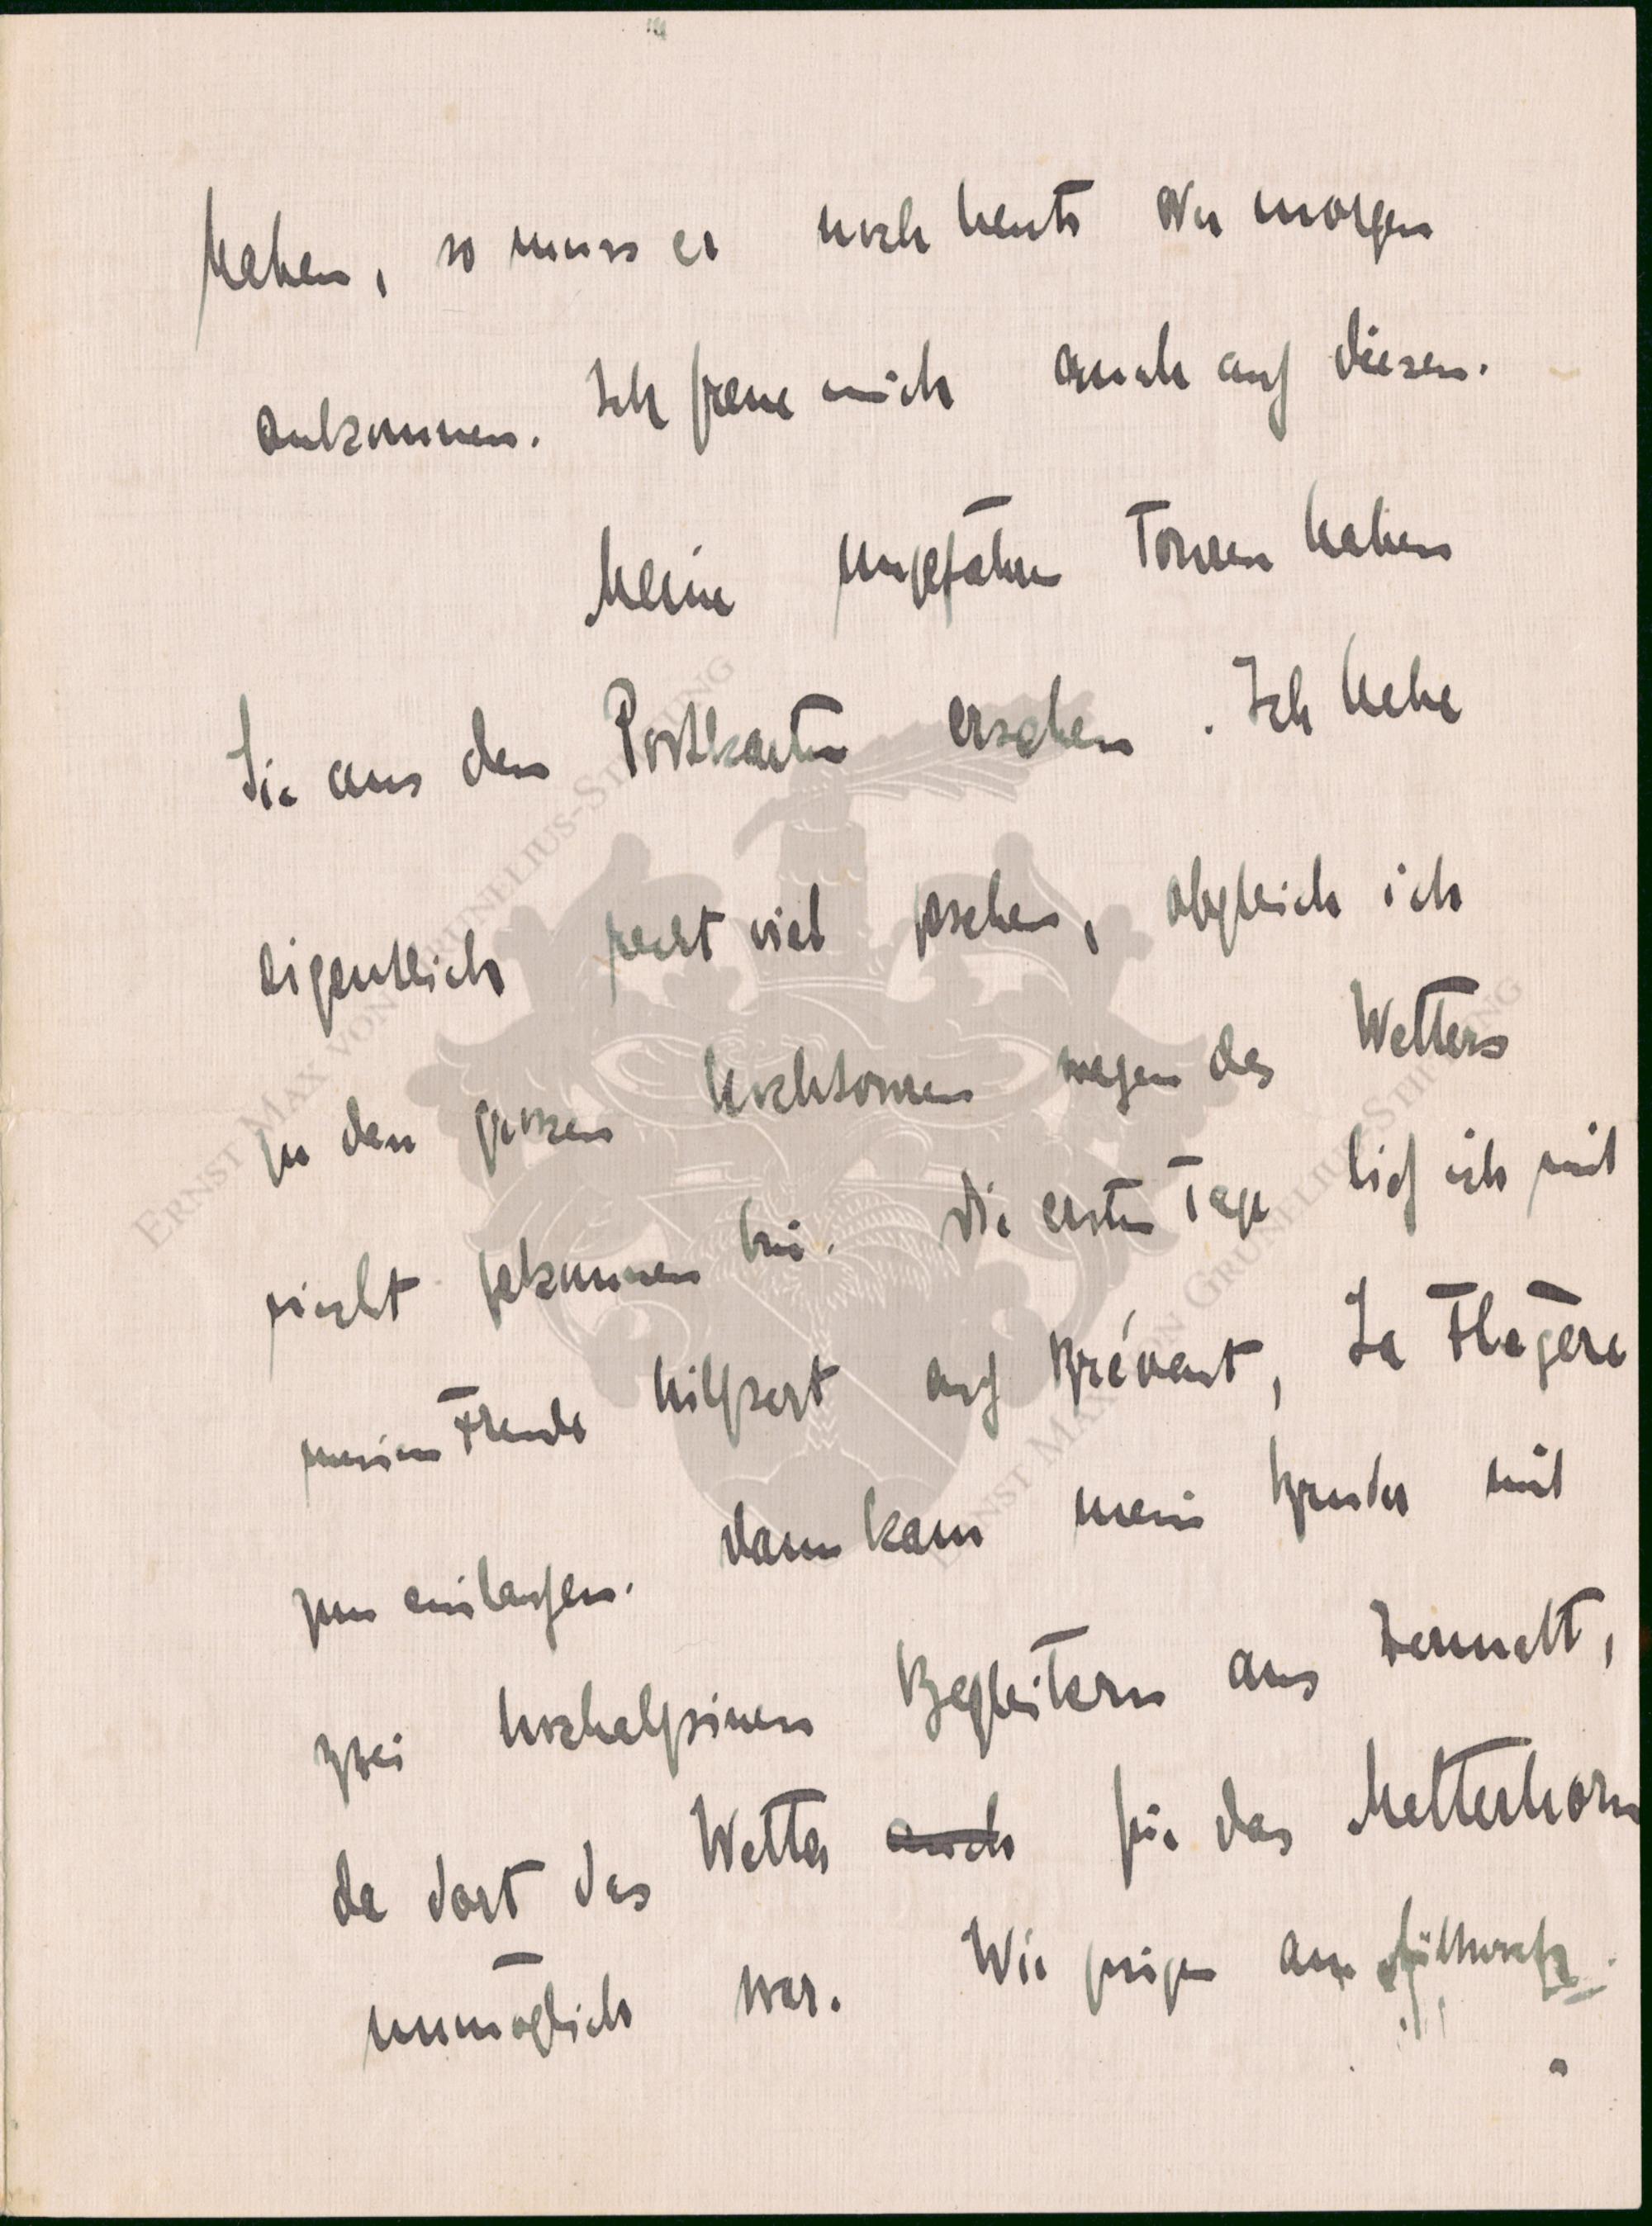 haben, so muss er noch heute oder morgen
ankommen. Ich freue mich auch auf diesen.
Meine ungefähren Touren haben
Sie aus den Postkarten ersehen. Ich habe
eigentlich recht viel gesehen, obgleich ich
zu den grossen Hochtouren wegen des Wetters
nicht gekommen bin. Die ersten Tage lief ich mit
meinem Freunde Hilpert auf Brévent, La Flégère
zum einlaufen. Dann kam mein Bruder mit
zwei hochalpinen Begleitern aus Zermatt,
da dort das Wetter auch für das Matterhorn
unmöglich war. Wir gingen am
ERNST MAX VON GRUNELIUS-STIFTUNG
ERNST MAX VON GRUNELIUS-STIFTUNG